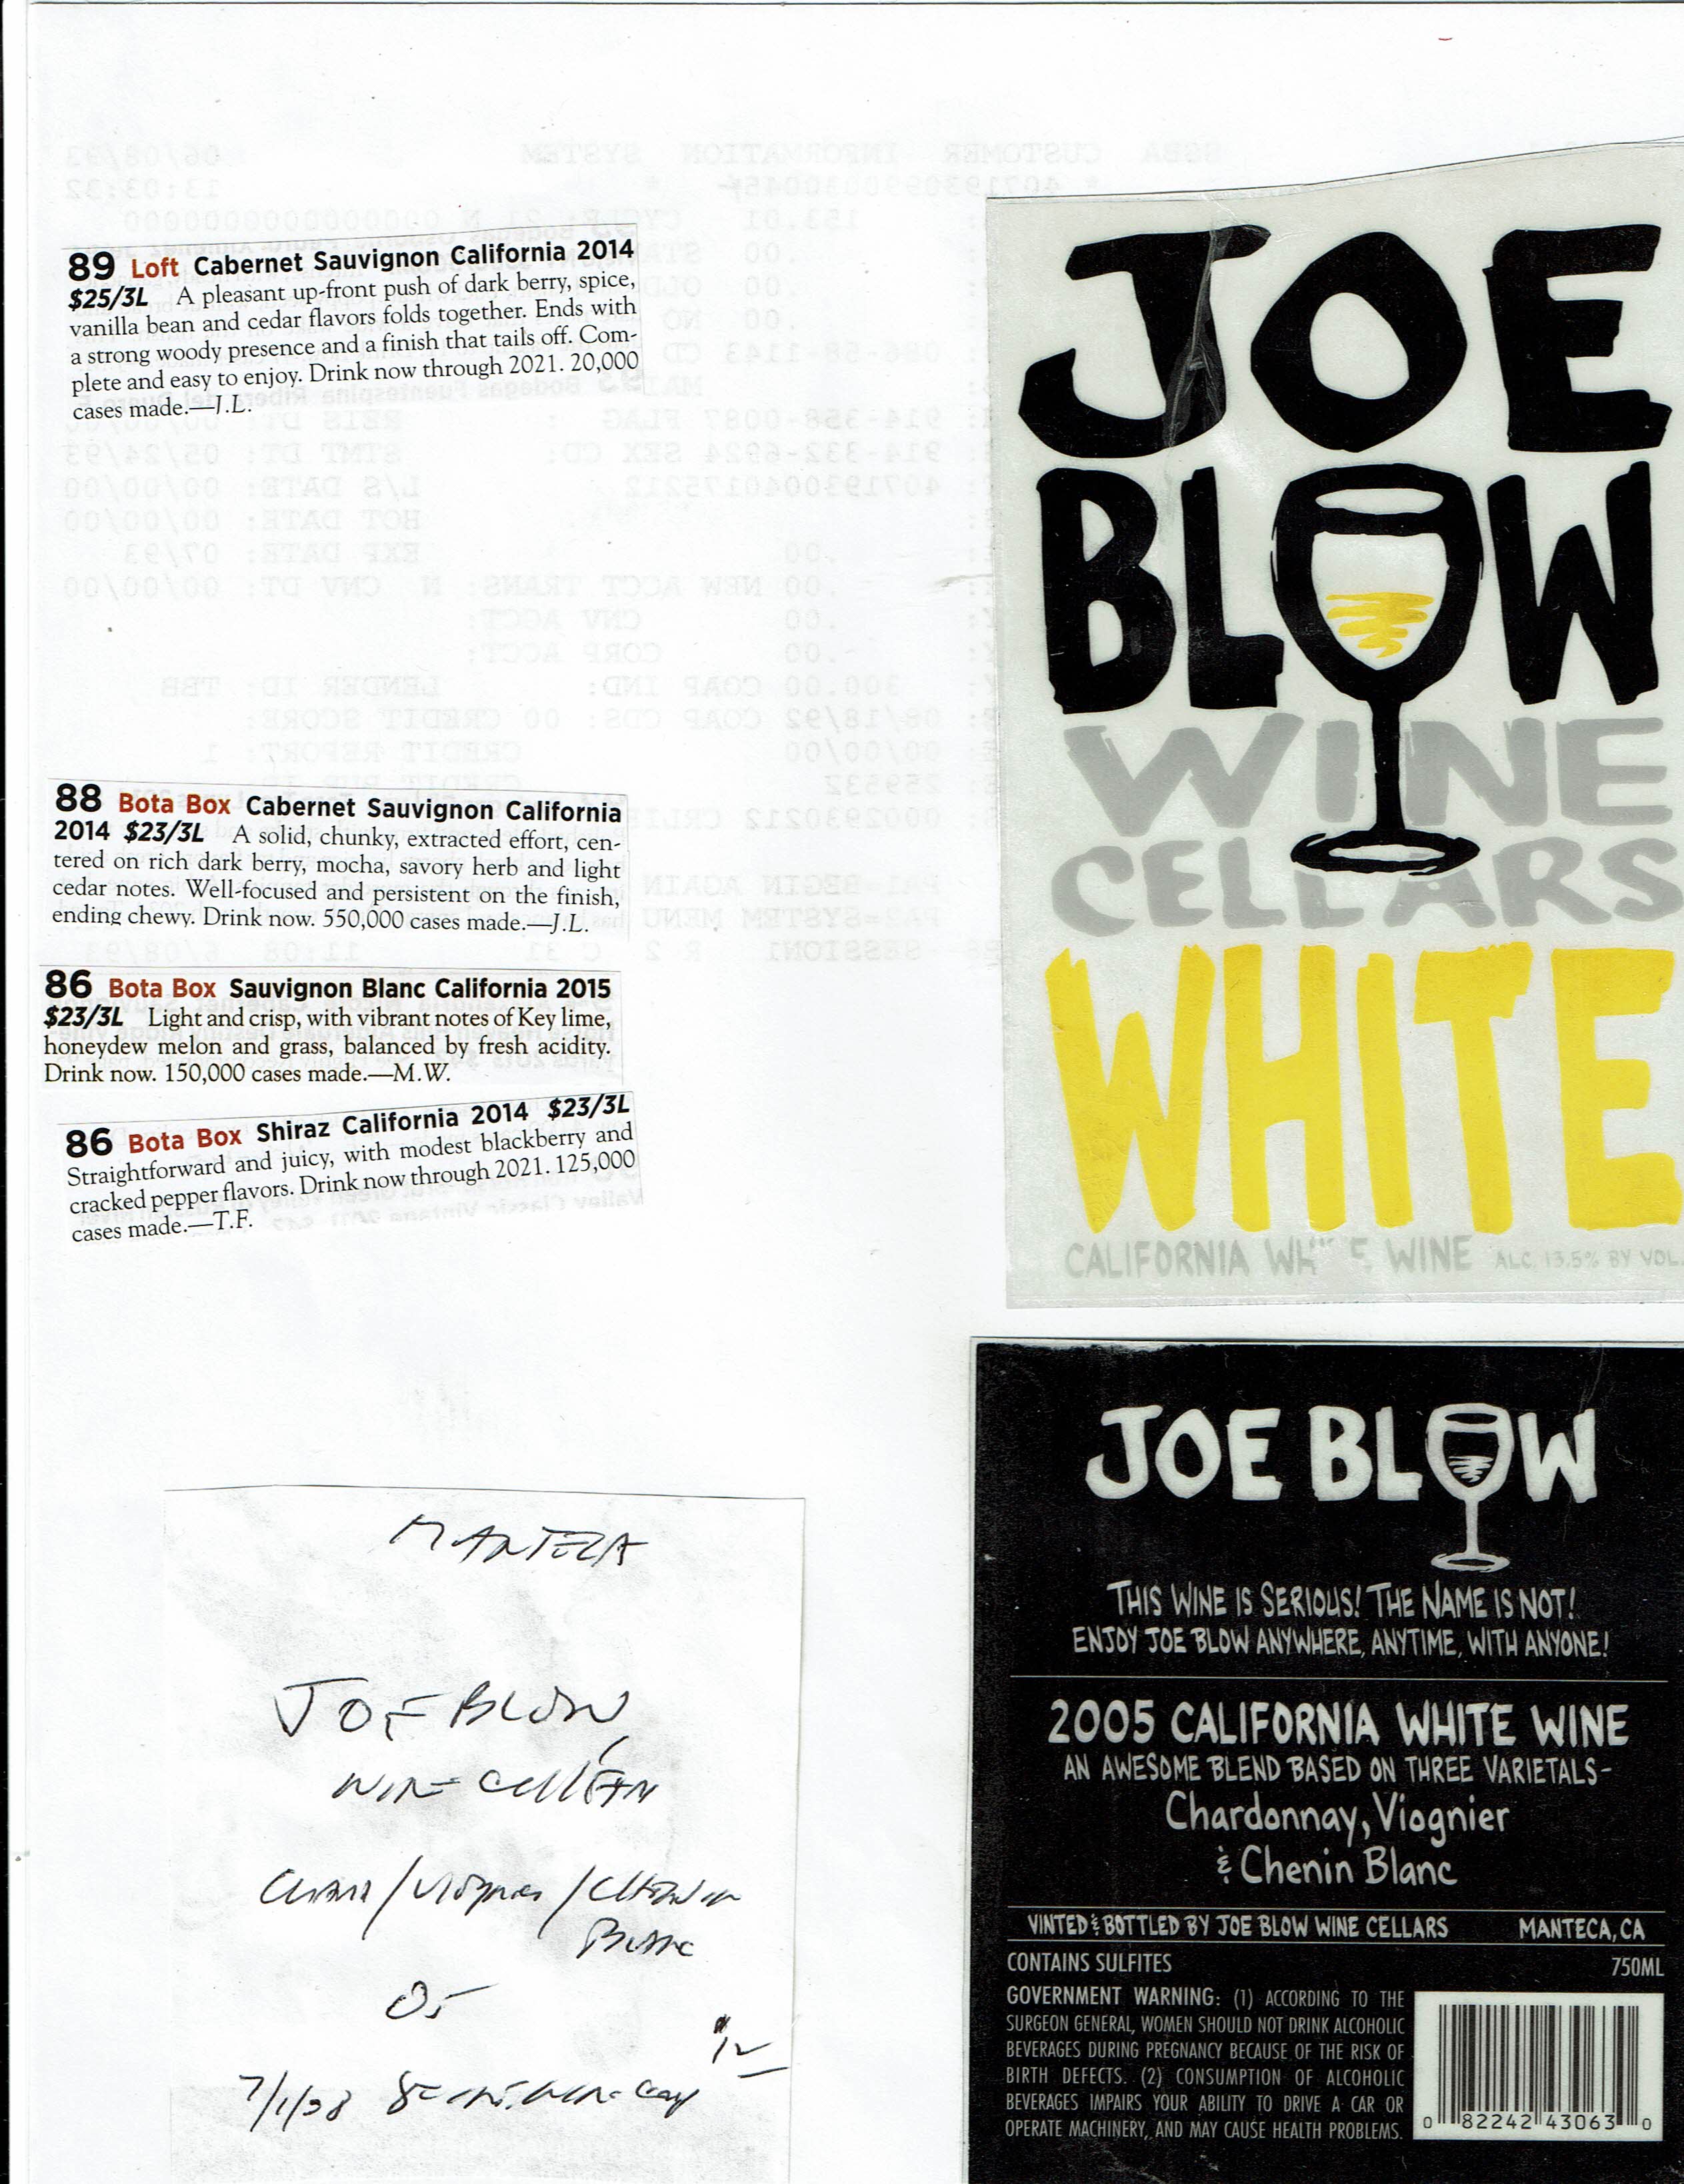 89 Loft Cabernet Sauvignon California 2014
$25/3L A pleasant up-front push of dark berry, spice,
vanilla bean and cedar flavors folds together. Ends with
a strong woody presence and a finish that tails off. Com-
plete and easy to enjoy. Drink now through 2021. 20,000
cases made.—J.L.
88 Bota Box Cabernet Sauvignon California
2014 $23/3L A solid, chunky, extracted effort, cen-
tered on rich dark berry, mocha, savory herb and light
cedar notes. Well-focused and persistent on the finish,
ending chewy. Drink now. 550,000 cases made.—J.L.
86 Bota Box Sauvignon Blanc California 2015
$23/3L Light and crisp, with vibrant notes of Key lime,
honeydew melon and grass, balanced by fresh acidity.
Drink now. 150,000 cases made.—M.W.
86 Bota Box Shiraz California 2014 $23/3L
Straightforward and juicy, with modest blackberry and
cracked pepper flavors. Drink now through 2021. 125,000
cases made.—T.F.
JOE
BLOW
WINE
CELLARS
WHITE
CALIFORNIA WHITE WINE ALC. 13.5% BY VOL.
MANTECA
JOE BLOW
WINE CELLARS
Blanc
05
JOE BLOW
THIS WINE IS SERIOUS! THE NAME IS NOT!
ENJOY JOE BLOW ANYWHERE, ANYTIME, WITH ANYONE!
2005 CALIFORNIA WHITE WINE
AN AWESOME BLEND BASED ON THREE VARIETALS-
Chardonnay, Viognier
& Chenin Blanc
VINTED & BOTTLED BY JOE BLOW WINE CELLARS MANTECA, CA
CONTAINS SULFITES 750ML
GOVERNMENT WARNING: (1) ACCORDING TO THE
SURGEON GENERAL, WOMEN SHOULD NOT DRINK ALCOHOLIC
BEVERAGES DURING PREGNANCY BECAUSE OF THE RISK OF
BIRTH DEFECTS. (2) CONSUMPTION OF ALCOHOLIC
BEVERAGES IMPAIRS YOUR ABILITY TO DRIVE A CAR OR
OPERATE MACHINERY, AND MAY CAUSE HEALTH PROBLEMS.
0 82242 43063 0